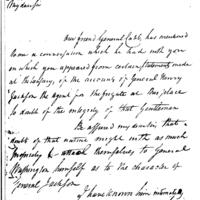 My dear Sir
Our friend General Cobb has mentioned
to me a conversation which he had with you
in which you appeared from certain statements made
at Philadelphia, of the account of General Henry
Jackson the agent for the frigate at this place
to doubt of the integrity of that Gentleman
Be assured my dear Sir that a
doubt of that nature might with as much
propriety attach themselves, to General
Washington himself as to the character of
General Jackson
I have known him intimately